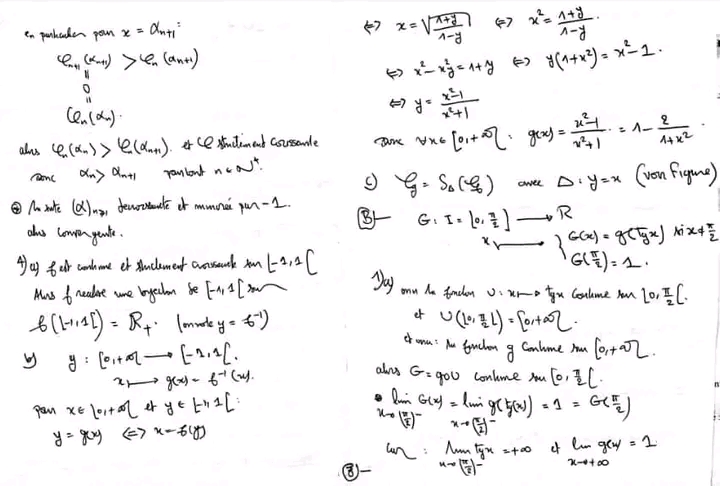 en particulier pour x = αn+1:
φn+1(αn+1) > φn(αn+1)
=
0
=
φn(αn).
alors φn(αn) > φn(αn+1). et φ strictement croissante
donc αn > αn+1 pour tout n ∈ N*.
la suite (α)n≥1 decroissante et minorée par -1.
alors convergente.
4) a) f est continue et strictement croissante sur [-1,1[
Alors f realise une bijection de [-1,1[ sur
f([-1,1[) = R+. (on note g = f⁻¹)
b) g : [0,+∞[ → [-1,1[.
x ↦ g(x) = f⁻¹(x).
pour x ∈ [0,+∞[ et y ∈ [-1,1[ :
y = g(x) ⟺ x = f(y)
⟺ x = √((1+y)/(1-y)) ⟺ x² = (1+y)/(1-y).
⟺ x² - x²y = 1+y ⟺ y(1+x²) = x²-1.
⟺ y = (x²-1)/(x²+1)
donc ∀x ∈ [0,+∞[ : g(x) = (x²-1)/(x²+1) = 1 - 2/(1+x²)
c) ζg = SΔ(ζf) avec Δ : y = x (voir figure)
B)- G : I = [0, π/2] → R
x ↦ { G(x) = g(tgx) si x ≠ π/2
G(π/2) = 1.
1)a) on a la fonction U : x ↦ tgx continue sur [0, π/2[.
et U([0, π/2[) = [0,+∞[.
et on a : la fonction g continue sur [0,+∞[.
alors G = goU continue sur [0, π/2[.
• lim x→(π/2)⁻ G(x) = lim x→(π/2)⁻ g(tg(x)) = 1 = G(π/2)
car : lim x→(π/2)⁻ tgx = +∞ et lim x→+∞ g(x) = 1